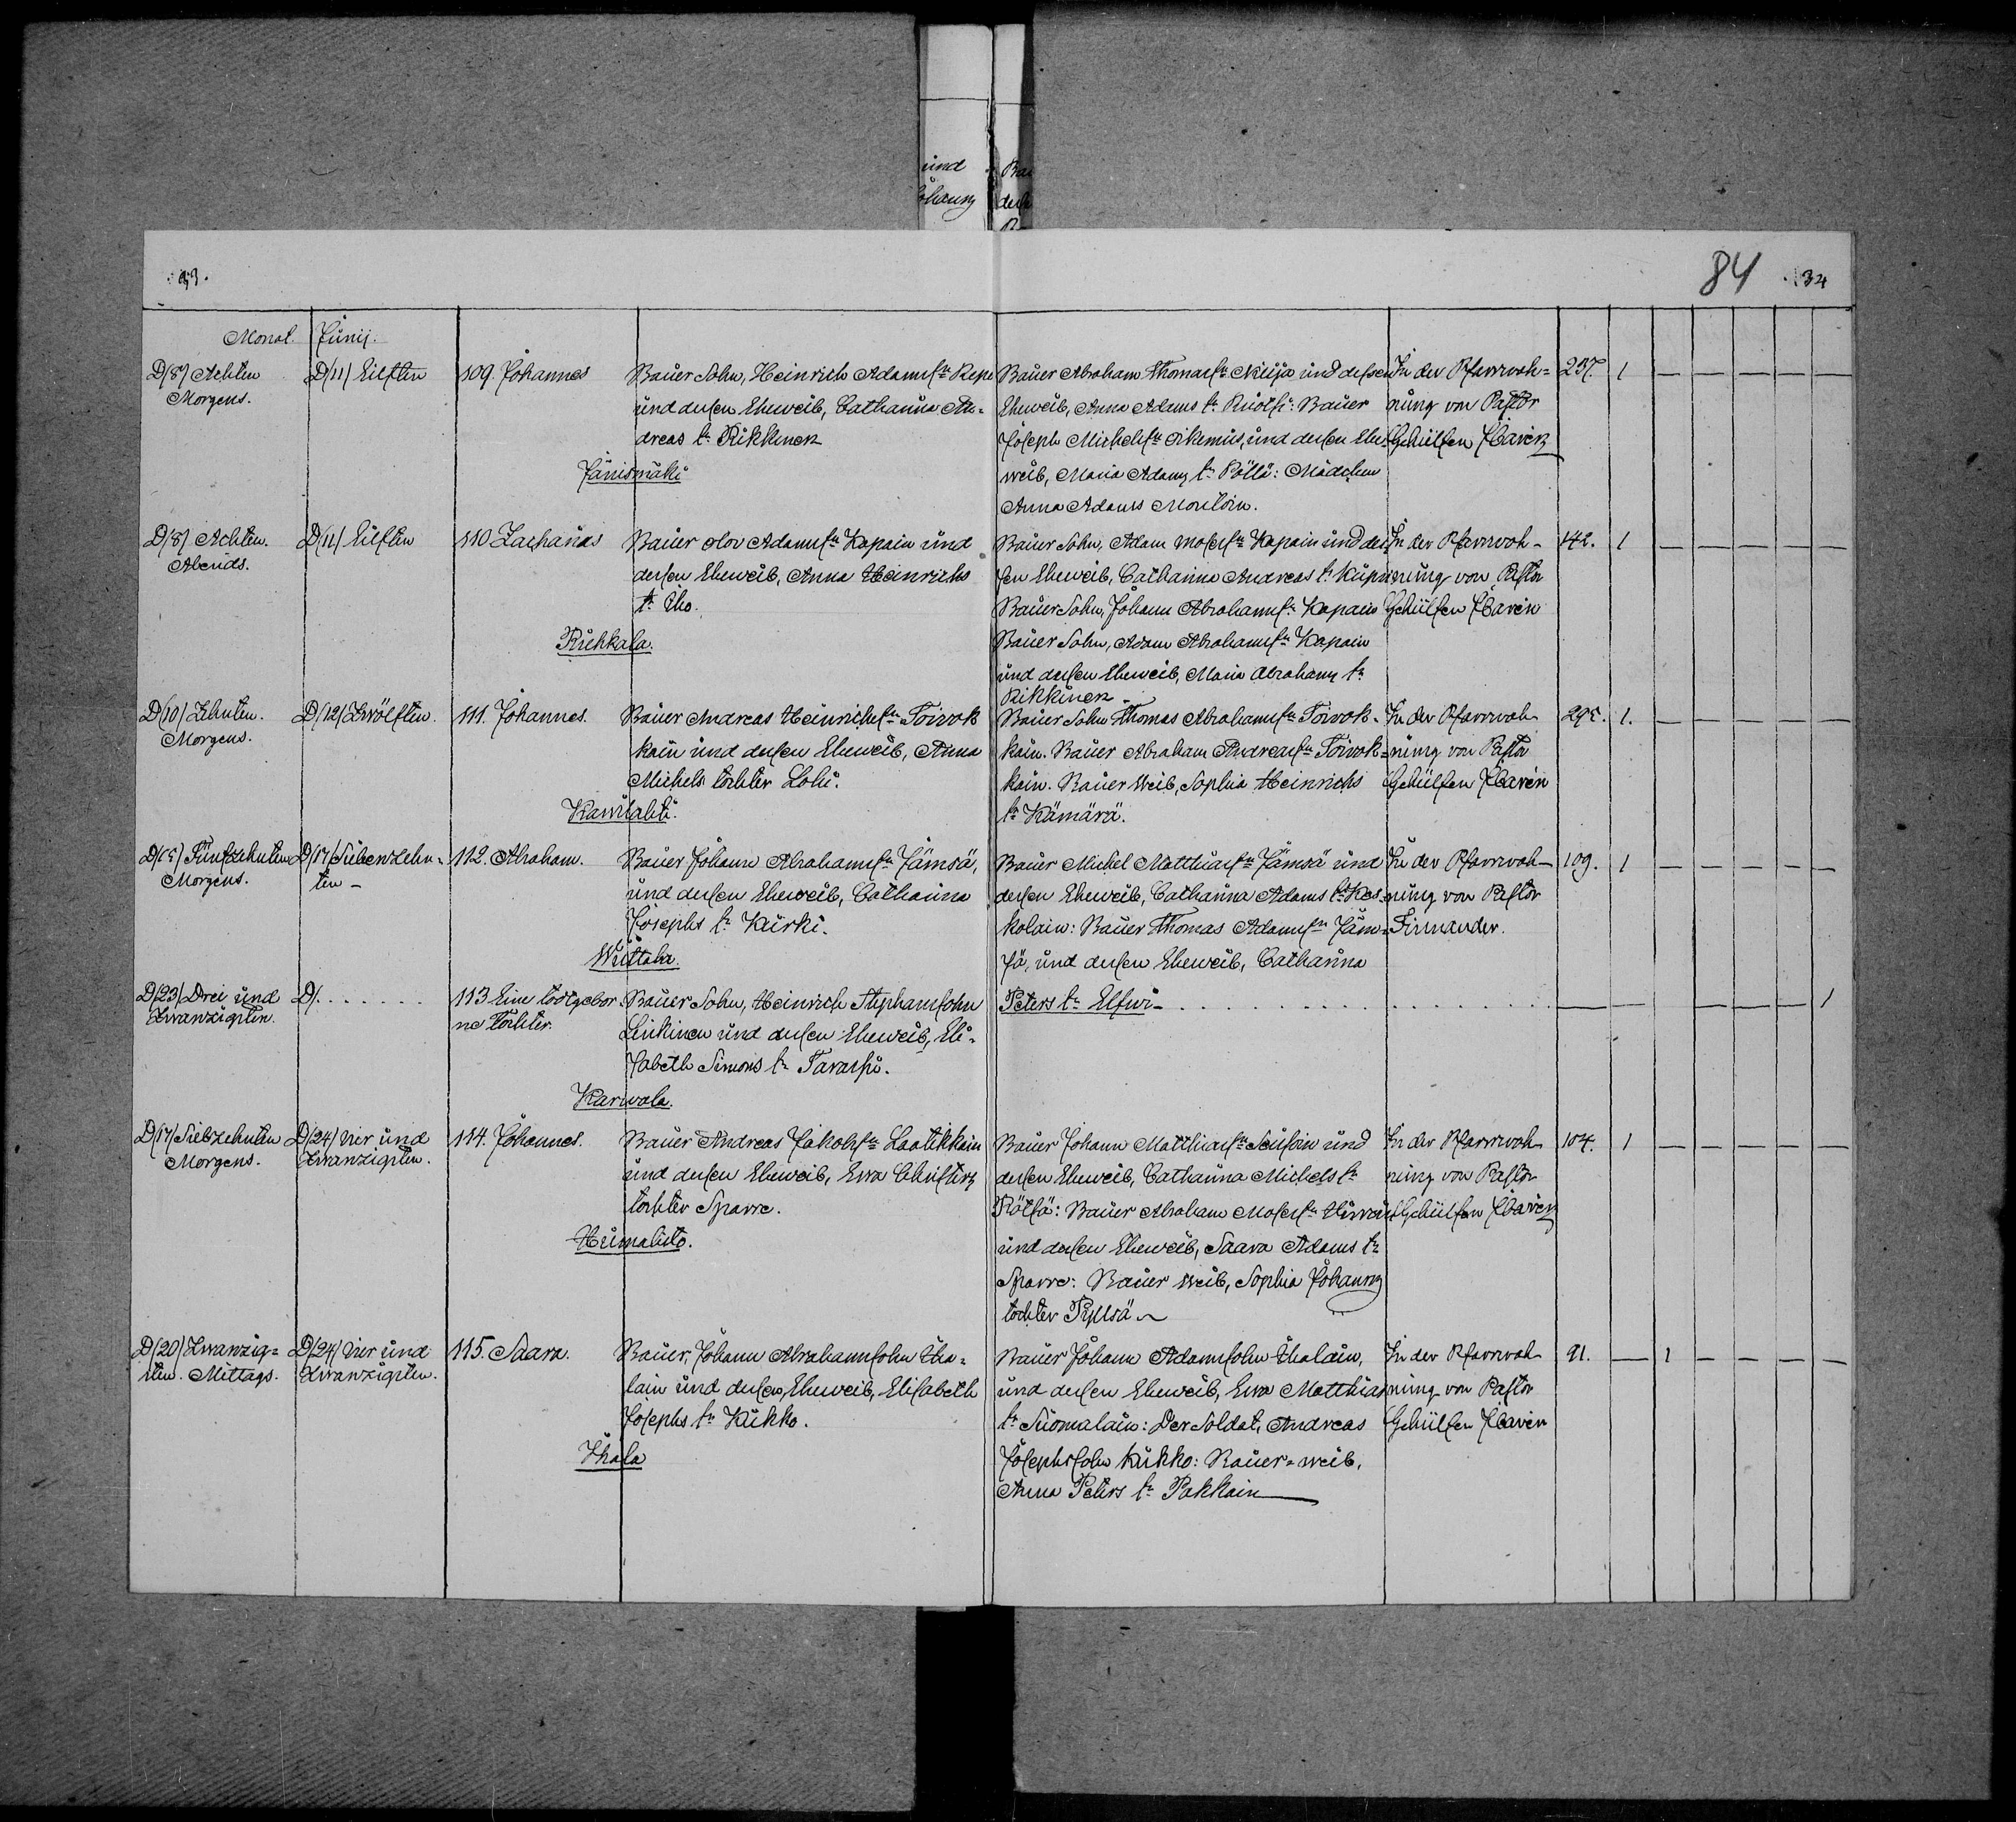 und
Johanns
84
34
Monat. Junij.
D/8/ Achten
Morgens.
D/11/ Eilften
109. Johannes
Bauer Sohn, Heinrich Adams sn Repo
und dessen Eheweib, Catharina An-
dreas tr Rikkinen
Jänismäki
Bauer Abraham Thomas sn und dessen
Eheweib, Anna Adams tr Ruotsi: Bauer
Joseph Michels sn und dessen Ehe
weib, Maria Adams tr Pöllä: Mädchen
Anna Adams
In der Pfarrwoh-
nung von Pastor
Gehülfen
237. 1 — — — — —
D/8/ Achten.
Abends.
D/11/ Eilften
110 Zacharias
Bauer Olov Adams sn Kapain und
dessen Eheweib, Anna Heinrichs
tr Eho.
Riehkala.
Bauer Sohn, Adam Moses sn Kapain und des
sen Eheweib, Catharina Andreas tr
Bauer Sohn, Johann Abrahams sn Kapain
Bauer Sohn, Adam Abrahams sn Kapain
und dessen Eheweib, Maria Abrahams tr
Rikkinen
In der Pfarrwoh-
nung von Pastor
Gehülfen
142. 1 — — — — —
D/10/ Zehnten.
Morgens.
D/12/ Zwölften.
111. Johannes.
Bauer Andreas Heinrichs sn Toiwok
kain und dessen Eheweib, Anna
Michels tochter Lohi.
Bauer Sohn Thomas Abrahams sn Toiwok-
kain. Bauer Abraham Andreas sn Toiwok-
kain. Bauer weib, Sophia Heinrichs
tr Kämärä.
In der Pfarrwoh-
nung von Pastor
Gehülfen
295. 1. — — — — —
D/15/ Fünfzehnten
Morgens.
D/17/ Siebenzehn-
ten -
112. Abraham.
Bauer Johann Abrahams sn Jämsä,
und dessen Eheweib, Catharina
Josephs tr Kurki.
Wiittala.
Bauer Michel Matthias sn Jämsä und
dessen Eheweib, Catharina Adams tr Kos-
kolain: Bauer Thomas Adams sn Jäm-
sä, und dessen Eheweib, Catharina
Peters tr Elfwi-
In der Pfarrwoh-
nung von Pastor
Sirnander.
109. 1 — — — — —
D/23/ Drei und
Zwanzigsten.
D/. . . . . . .
113 Eine todtgebor
ne tochter.
Bauer Sohn, Heinrich Stephanssohn
Leikinen und dessen Eheweib, Eli-
sabeth Simons tr Tarassi.
Karwala.
— — — — — 1
D/17/ Siebzehnten
Morgens.
D/24/ Vier und
Zwanzigsten.
114. Johannes.
Bauer Andreas Jakobs sn Laatikkain
und dessen Eheweib, Ewa Christers
tochter Sparre.
Huumalisto.
Bauer Johann Matthias sn und
dessen Eheweib, Catharina Michels tr
Pötsä: Bauer Abraham Moses sn
und dessen Eheweib, Saara Adams tr
Sparre: Bauer weib, Sophia Johanns
tochter
In der Pfarrwoh-
nung von Pastor
Gehülfen
104. 1 — — — — —
D/20/ Zwanzig-
sten. Mittags.
D/24/ Vier und
Zwanzigsten.
115. Saara.
Bauer, Johann Abrahamssohn Iha-
lain und dessen Eheweib, Elisabeth
Josephs tr Kukko.
Ihala
Bauer Johann Adamssohn Ihalain,
und dessen Eheweib, Ewa Matthias
tr Suomalain: Der Soldat, Andreas
Josephssohn Kukko: Bauer-weib,
Anna Peters tr Pakkain
In der Pfarrwoh-
nung von Pastor
Gehülfen
91. — 1 — — — —